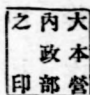 大本營
內政部
之印